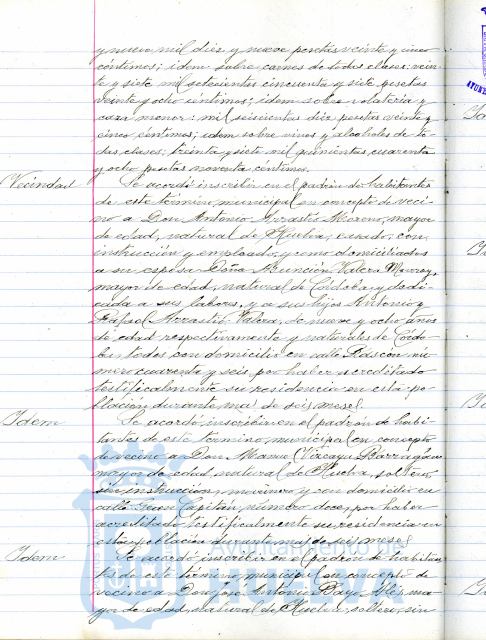 y nueve mil diez y nueve pesetas veinte y cinco
céntimos; idem sobre carnes de todas clases: vein
te y siete mil setecientas cincuenta y siete pesetas
veinte y ocho céntimos; idem sobre volatería y
caza menor: mil seiscientas diez pesetas veinte y
cinco céntimos; idem sobre vinos y alcoholes de to
das clases; treinta y siete mil quinientas cuarenta
y ocho pesetas noventa céntimos.
Vecindad
Se acordó inscribir en el padrón de habitantes
de este término municipal en concepto de veci
no a Don Antonio Arrastio Moreno, mayor
de edad, natural de Huelva, casado, con
instrucción y empleado, y como domiciliados
a su esposa Doña Asunción Valera
mayor de edad, natural de Córdoba, y dedi
cada a sus labores, y a sus hijos Antonio y
Rafael Arrastio Valera, de nueve y ocho años
de edad respectivamente y naturales de Córdo
ba, todos con domicilio en calle Rascón nú
mero cuarenta y seis, por haber acreditado
testificalmente su residencia en esta po
blación durante mas de seis meses.
Idem
Se acordó inscribir en el padrón de habi
tantes de este término municipal en concepto
de vecino a Don Manuel Vizcaya
mayor de edad, natural de Huelva, soltero,
sin instrucción, marinero y con domicilio en
calle Gran Capitán, número doce, por haber
acreditado testificalmente su residencia en
esta población durante mas de seis meses.
Idem
Se acordó inscribir en el padrón de habitan
tes de este término municipal en concepto de
vecino a Don José Antonio Bayo
yor de edad, natural de Huelva, soltero, sin
Ayuntamiento de
HUELVA